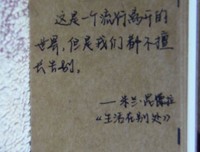 这是一个流行离开的
世界,但是我们都不擅
长告别。
——米兰·昆德拉
《生活在别处》